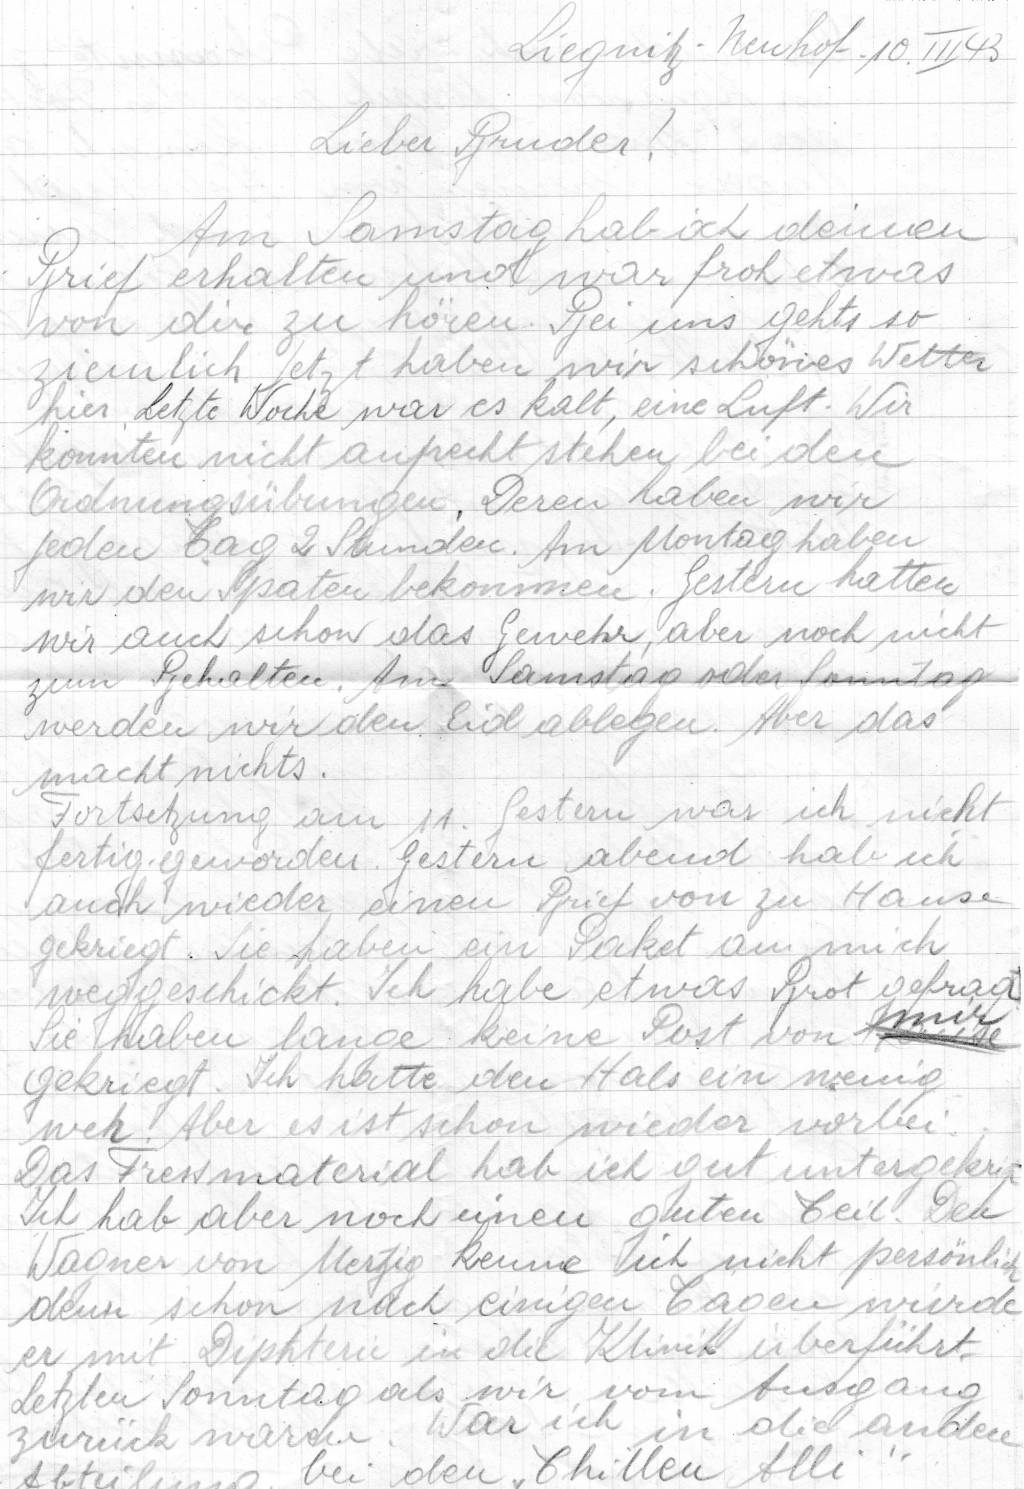 Liegnitz-Neuhof 10.III43
Lieber Bruder!
Am Samstag hab ich deinen
Brief erhalten und war froh etwas
von dir zu hören. Bei uns gehts so
ziemlich Jetzt haben wir schönes Wetter
hier. Letzte Woche war es kalt, eine Luft. Wir
konnten nicht aufrecht stehen bei den
Ordnungsübungen. Deren haben wir
jeden Tag 2 Stunden. Am Montag haben
wir den Spaten bekommen. Gestern hatten
wir auch schon das Gewehr, aber noch nicht
zum Behalten. Am Samstag oder Sonntag
werden wir den Eid ablegen. Aber das
macht nichts.
Fortsetzung am 11. Gestern war ich nicht
fertig geworden. Gestern abend hab ich
auch wieder einen Brief von zu Hause
gekriegt. Sie haben ein Paket an mich
weggeschickt. Ich habe etwas Brot gefragt
Sie haben lange keine Post von mir
gekriegt. Ich hatte den Hals ein wenig
weh. Aber es ist schon wieder vorbei.
Das Fressmaterial hab ich gut untergekrigt
Ich hab aber noch einen guten Teil. Den
Wagner von Merzig kenne ich nicht persönlich
denn schon nach einigen Tagen wurde
er mit Diphterie in die Klinik überführt.
Letzten Sonntag als wir vom Ausgang
zurück waren. War ich in die andere
Abteilung bei den „Chillen Alli“